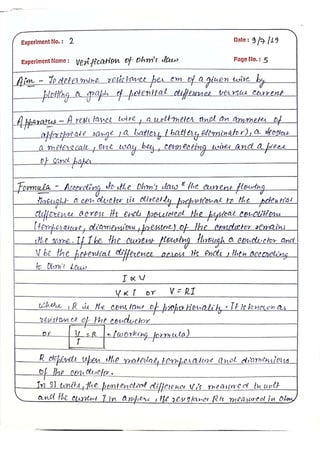 Experiment No. : 2 Date : 9/7/19
Experiment Name : Verification of Ohm's Law Page No. : 5
Aim - To determine resistance per cm of a given wire by
plotting a graph of potential difference versus current
Apparatus - A resistance wire, a voltmeter and an ammeter of
appropriate range, a battery (battery eliminator), a
a metre scale, one way key, connecting wires and a piece
of sand paper
Formula - According to the Ohm's law " the current flowing
through a conductor is directly proportional to the potential
difference across its ends provided the physical conditions
(temperature, diamensions, pressure) of the conductor remains
the same. If I be the current flowing through a conductor and
V be the potential difference across its ends, then according
to Ohm's Law
I ∝ V
V ∝ I or V = RI
where, R is the constant of proportionality. It is known as
resistance of the conductor
or V/I = R - (working formula)
R depends upon the material, temperature and diamensions
of the conductor.
In SI units, the potential difference V is measured in volt
and the current I in ampere, the resistance R is measured in Ohm